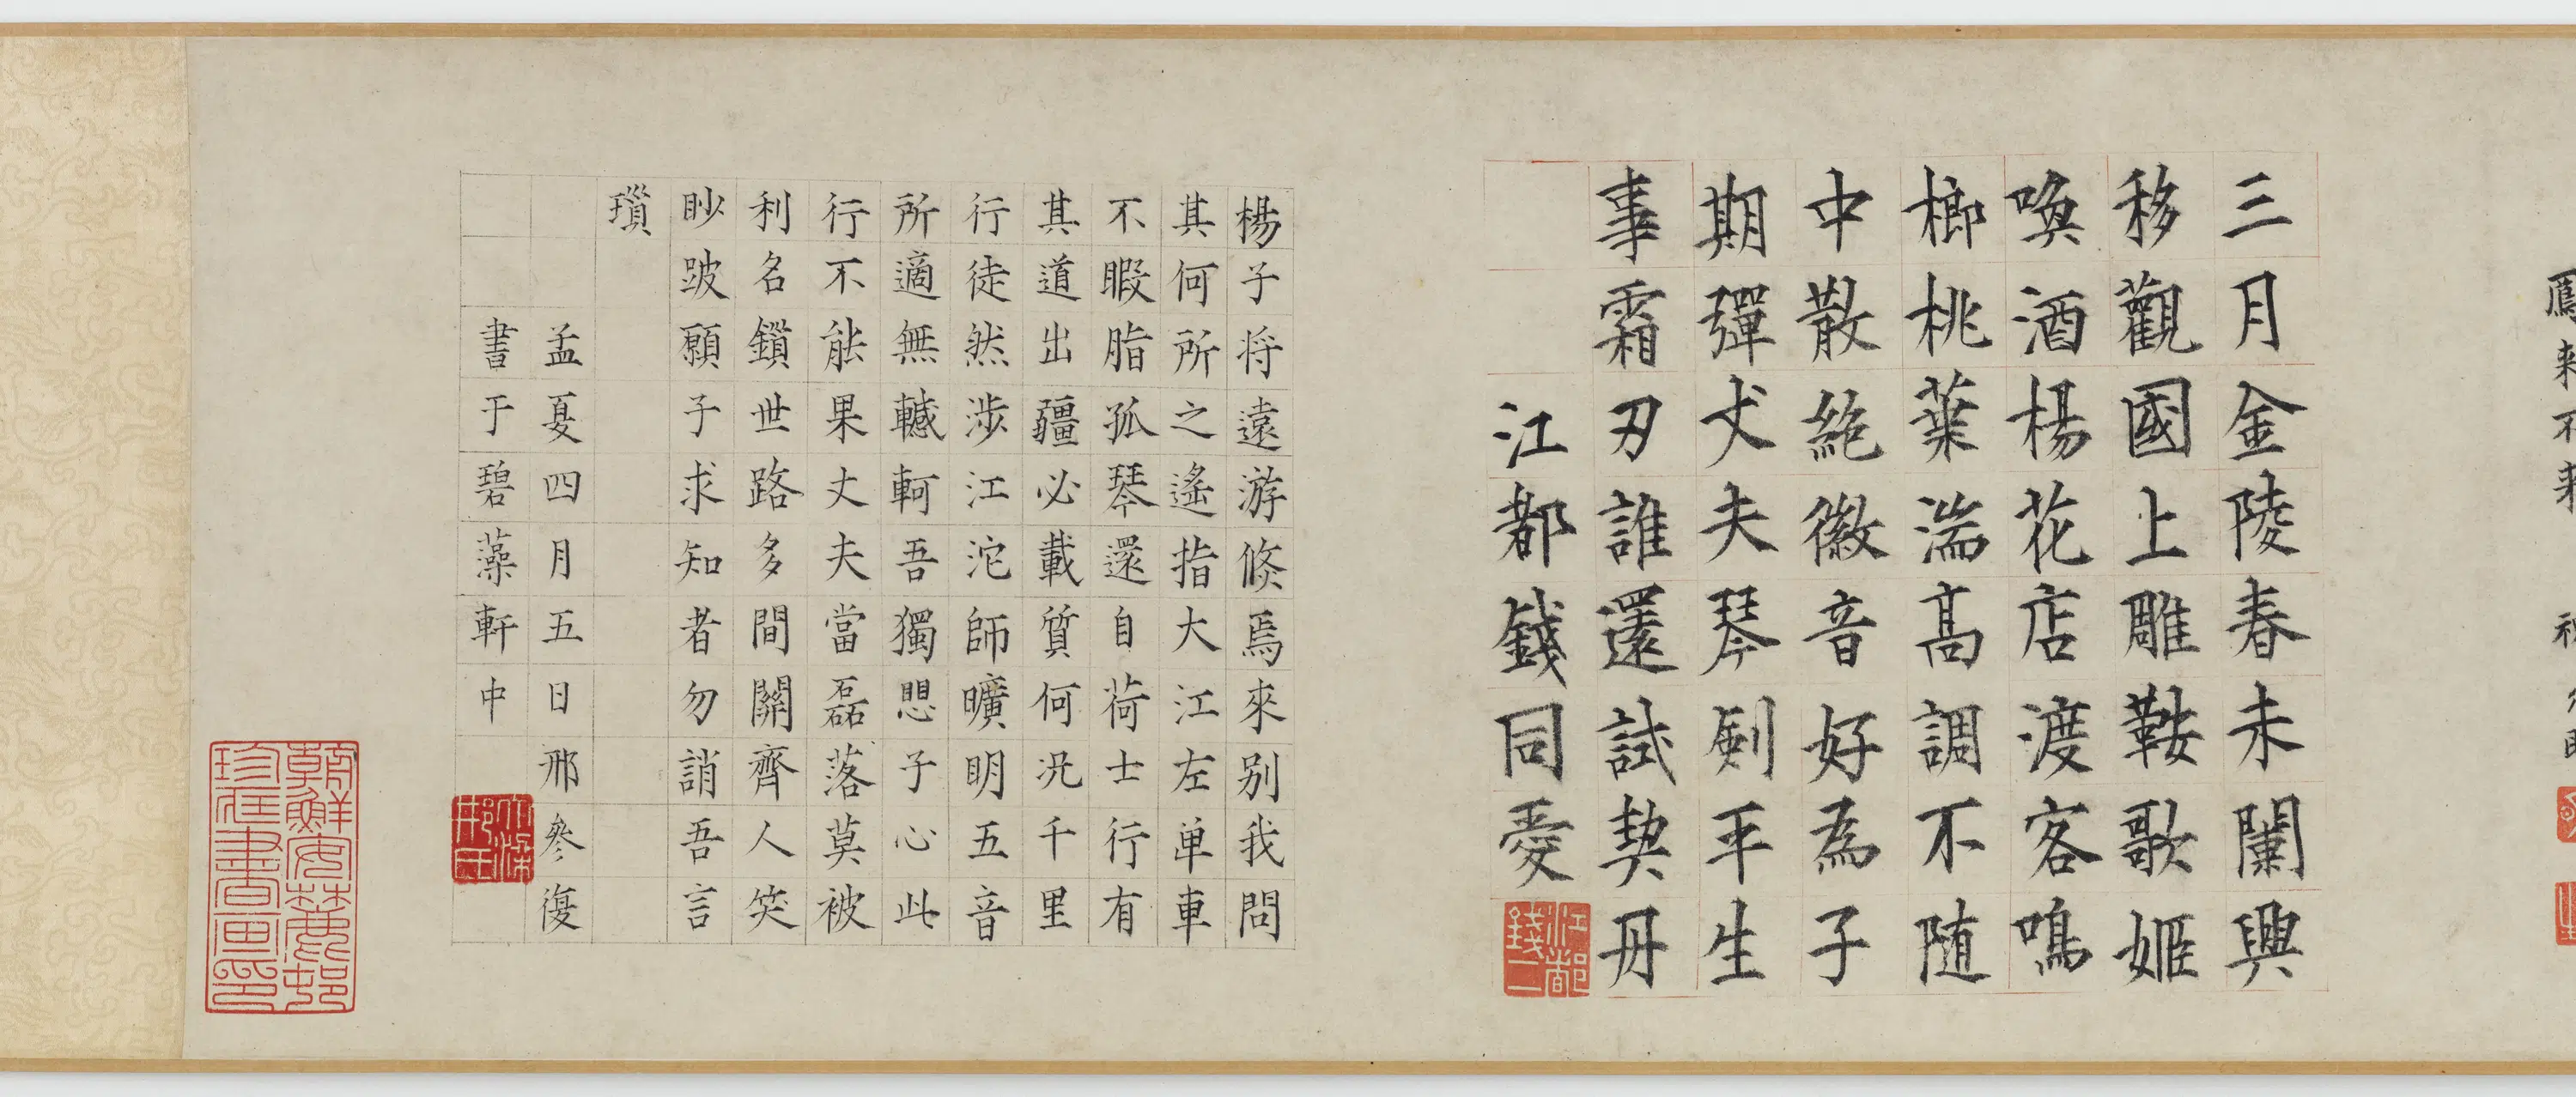 三月金陵春未闌興
移觀國上雕鞍歌姬
喚酒楊花店渡客鳴
榔桃葉湍高調不随
中散絶徽音好為子
期彈丈夫琴劍平生
事霜刃誰還試契丹
江都錢同愛
江都錢一
楊子将遠游倐焉來别我問
其何所之遙指大江左単車
不暇脂孤琴還自荷士行有
其道出疆必載質何况千里
行徒然涉江沱師曠明五音
所適無轗軻吾獨愳子心此
行不能果丈夫當磊落莫被
利名鎖世路多間關齊人笑
眇跛願子求知者勿誚吾言
瑣
孟夏四月五日邢參復
書于碧藻軒中
朝鮮安麓邨
珍藏書畫印